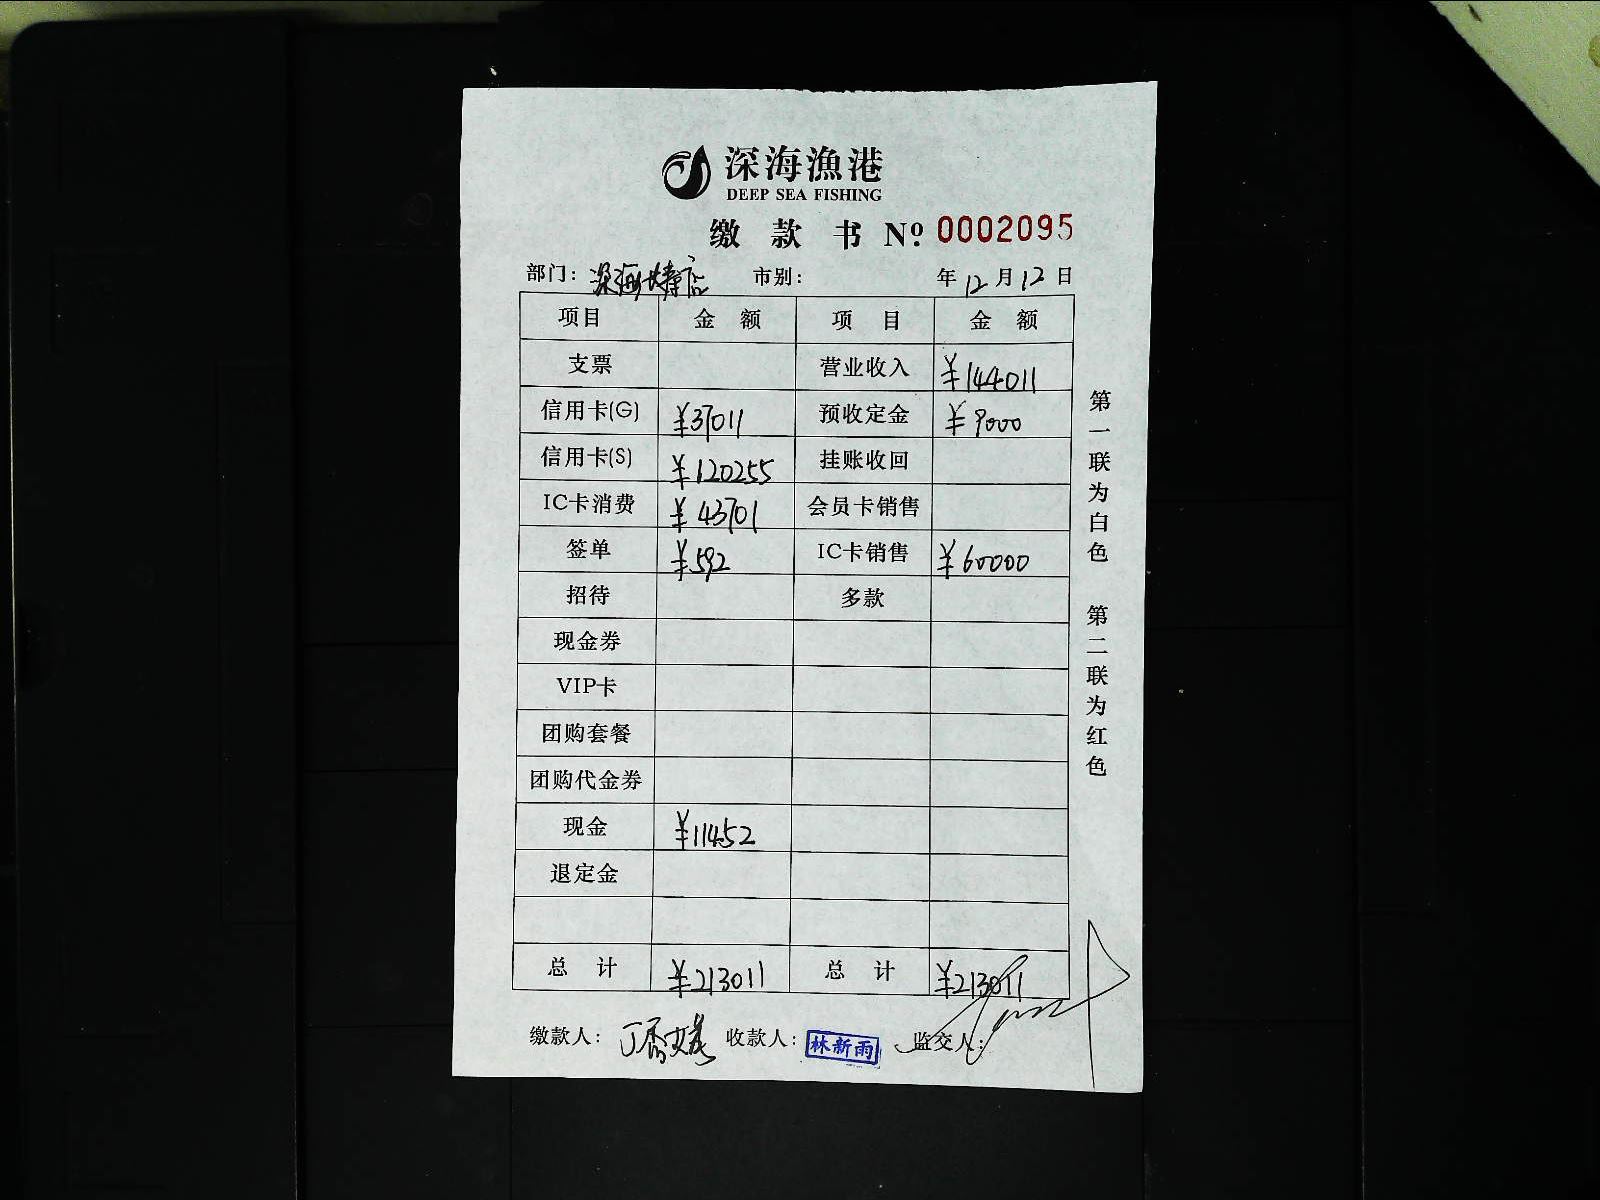 深海漁港
DEEP SEA FISHING
缴款书 Nº 0002095
部门：深海 店 市别： 年12月12日
项目 金额 项目 金额
支票 营业收入 ¥144011
信用卡(G) ¥37011 预收定金 ¥9000
信用卡(S) ¥120255 挂账收回
IC卡消费 ¥43701 会员卡销售
签单 ¥592 IC卡销售 ¥60000
招待 多款
现金券
VIP卡
团购套餐
团购代金券
现金 ¥11452
退定金
总计 ¥213011 总计 ¥213011
缴款人：丁香 收款人：林新雨 监交人：
第一联为白色 第二联为红色